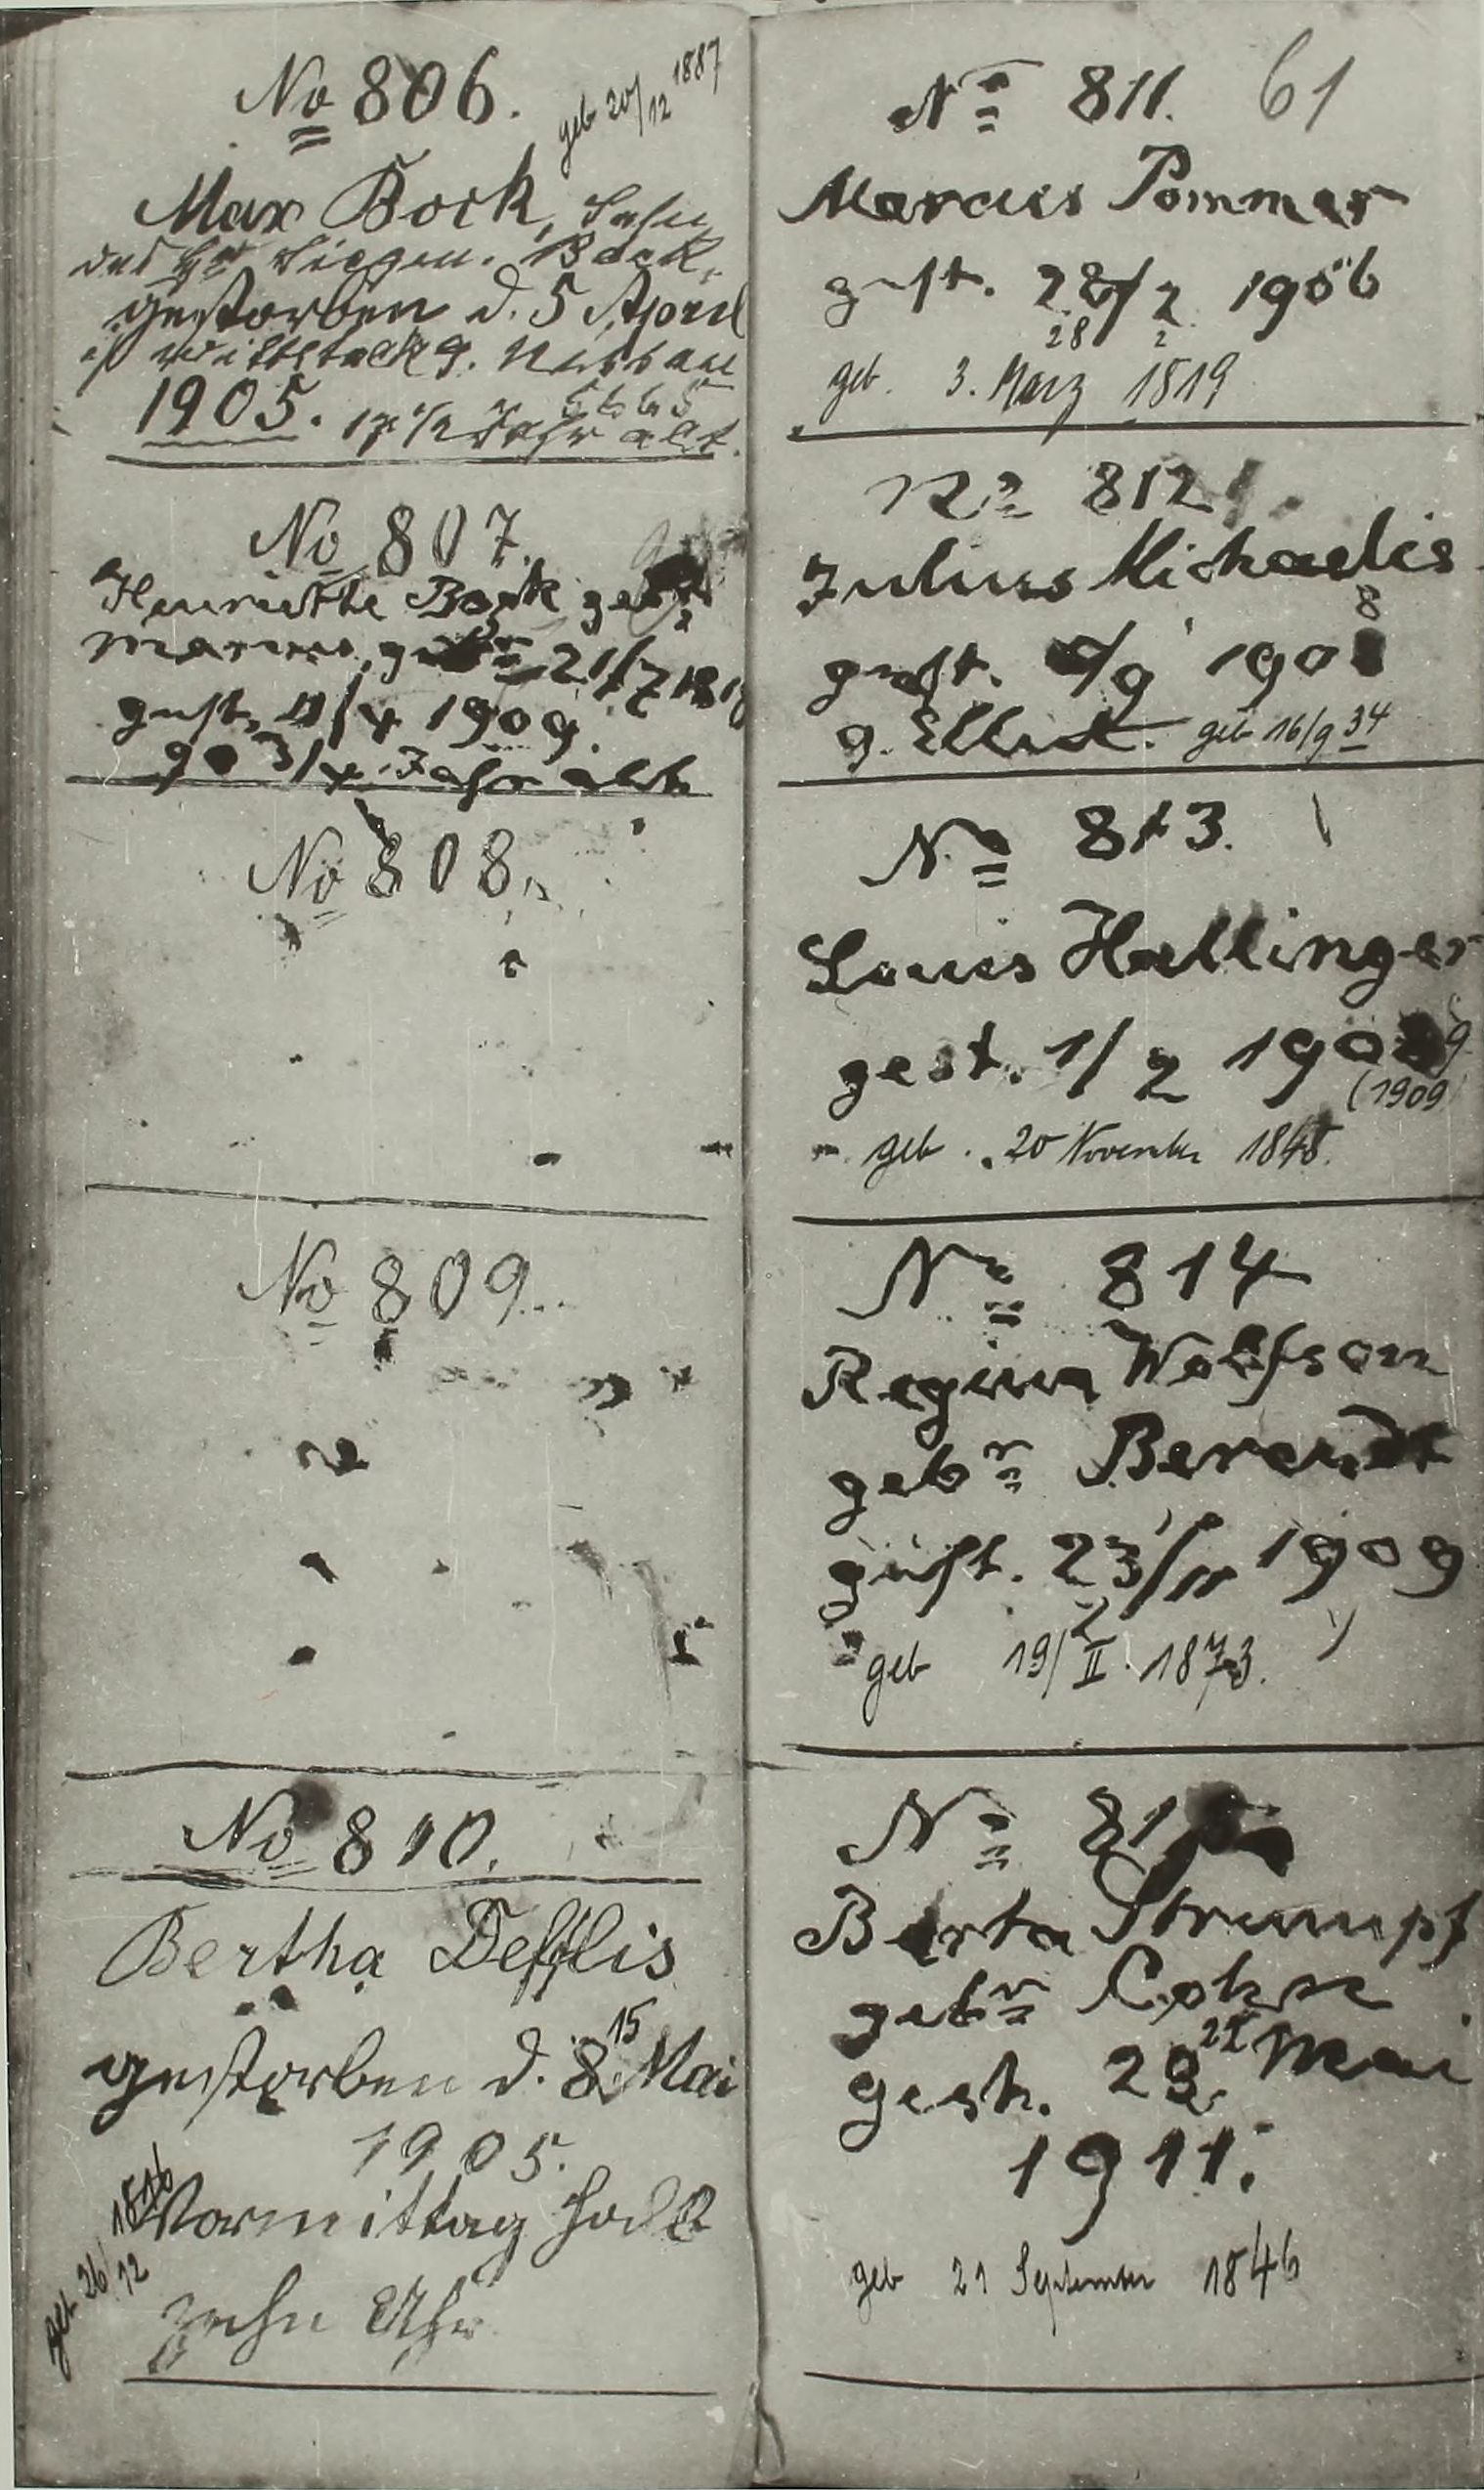 No 806.
geb 20/12 1887
Max Bock, Sohn
des Hrn Siegm. Bock,
gestorben d. 5 April
1905. 17 1/2 Jahr alt.
No 807.
Henriette Bock geb
Marcus, 21/7 181
gest. 11/4 1909.
90 3/4 Jahr alt
No 808.
No 809.
No 810.
Bertha Defflis
gestorben d. 8. 15 Mai
1905.
Vormittag halb
zehn Uhr
geb 26/12
No 811. 61
Marcus Pommer
gest. 28/2 1906
28 2
geb. 3. März 1819
No 812
Julius Michaelis
gest. /9 1908
8
g. Elbert. geb 16/9 34
No 813.
Louis Hallinger
gest. 1/2 1909
(1909)
geb. 20 November 1845.
No 814
Regina Wolfson
gebn Berendt
gest. 23/11 1909
geb 19/II. 1873.
No 815
Berta Strumpf
gebn Cohn
gest. 23. 22 Mai
1911.
geb 21 September 1846